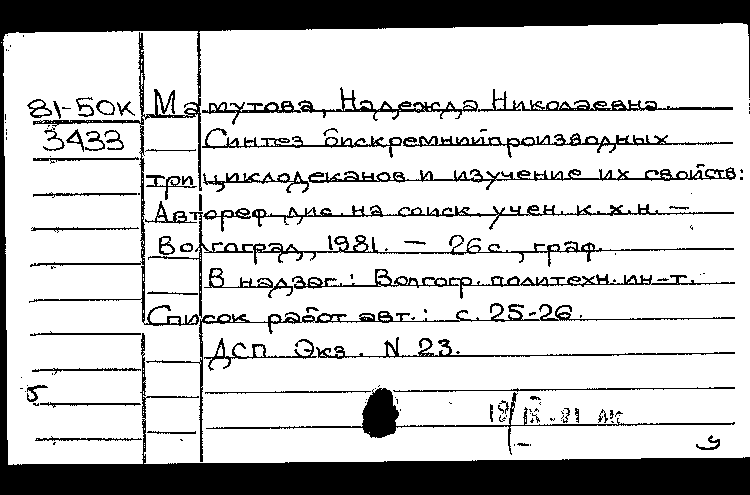 81-50К Мамутова, Надежда Николаевна.
3433 Синтез бискремнийпроизводных
трициклодеканов и изучение их свойств:
Автореф. дис. на соиск. учен. к.х.н. —
Волгоград, 1981. — 26 с., граф.
В надзаг.: Волгогр. политехн. ин-т.
Список работ авт.: с. 25-26.
ДСП Экз. N 23.
б
18/IX-81
у